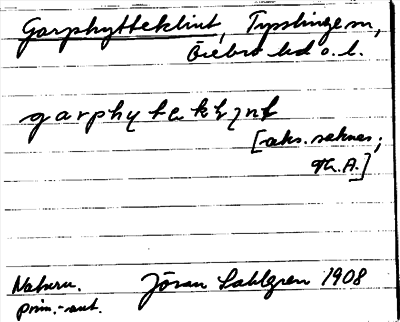 Garphytteklint, Tysslinge sn,
Örebro hd o. l.
garphytekḷınt
[aks. saknas;
Th. A.]
Naturn.
prim.-ant.
Jöran Sahlgren 1908